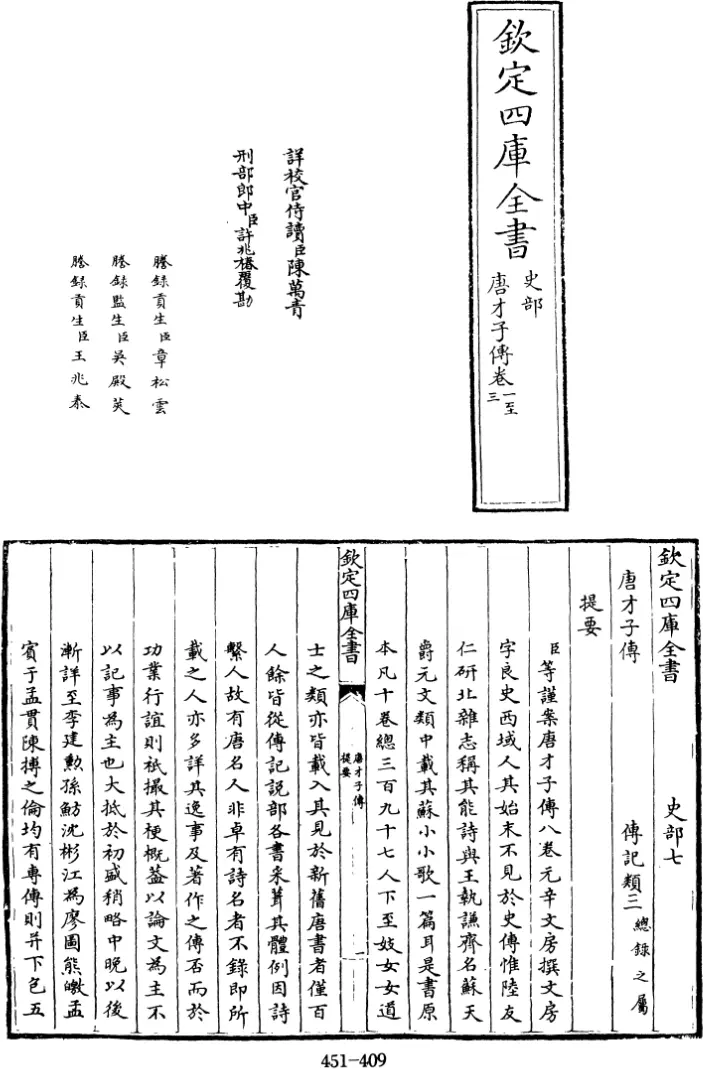 欽定四庫全書
史部
唐才子傳卷一至三
詳校官侍讀臣陳萬青
刑部郎中臣許兆椿覆勘
謄録貢生臣章松雲
謄録監生臣吳殿英
謄録貢生臣王兆泰
欽定四庫全書 史部七
唐才子傳 傳記類三總錄之屬
提要
臣等謹案唐才子傳八卷元辛文房撰文房
字良史西域人其始末不見於史傳惟陸友
仁研北雜志稱其能詩與王執謙齊名蘇天
爵元文類中載其蘇小小歌一篇耳是書原
本凡十卷總三百九十七人下至妓女女道
欽定四庫全書
唐才子傳
提要
一
士之類亦皆載入其見於新舊唐書者僅百
人餘皆從傳記説部各書采葺其體例因詩
繫人故有唐名人非卓有詩名者不錄即所
載之人亦多詳其逸事及著作之傳否而於
功業行誼則祇撮其梗概葢以論文為主不
以記事為主也大抵於初盛稍略中晚以後
漸詳至李建勲孫魴沈彬江為廖圖熊皦孟
賓于孟貫陳搏之倫均有專傳則并下包五
451-409